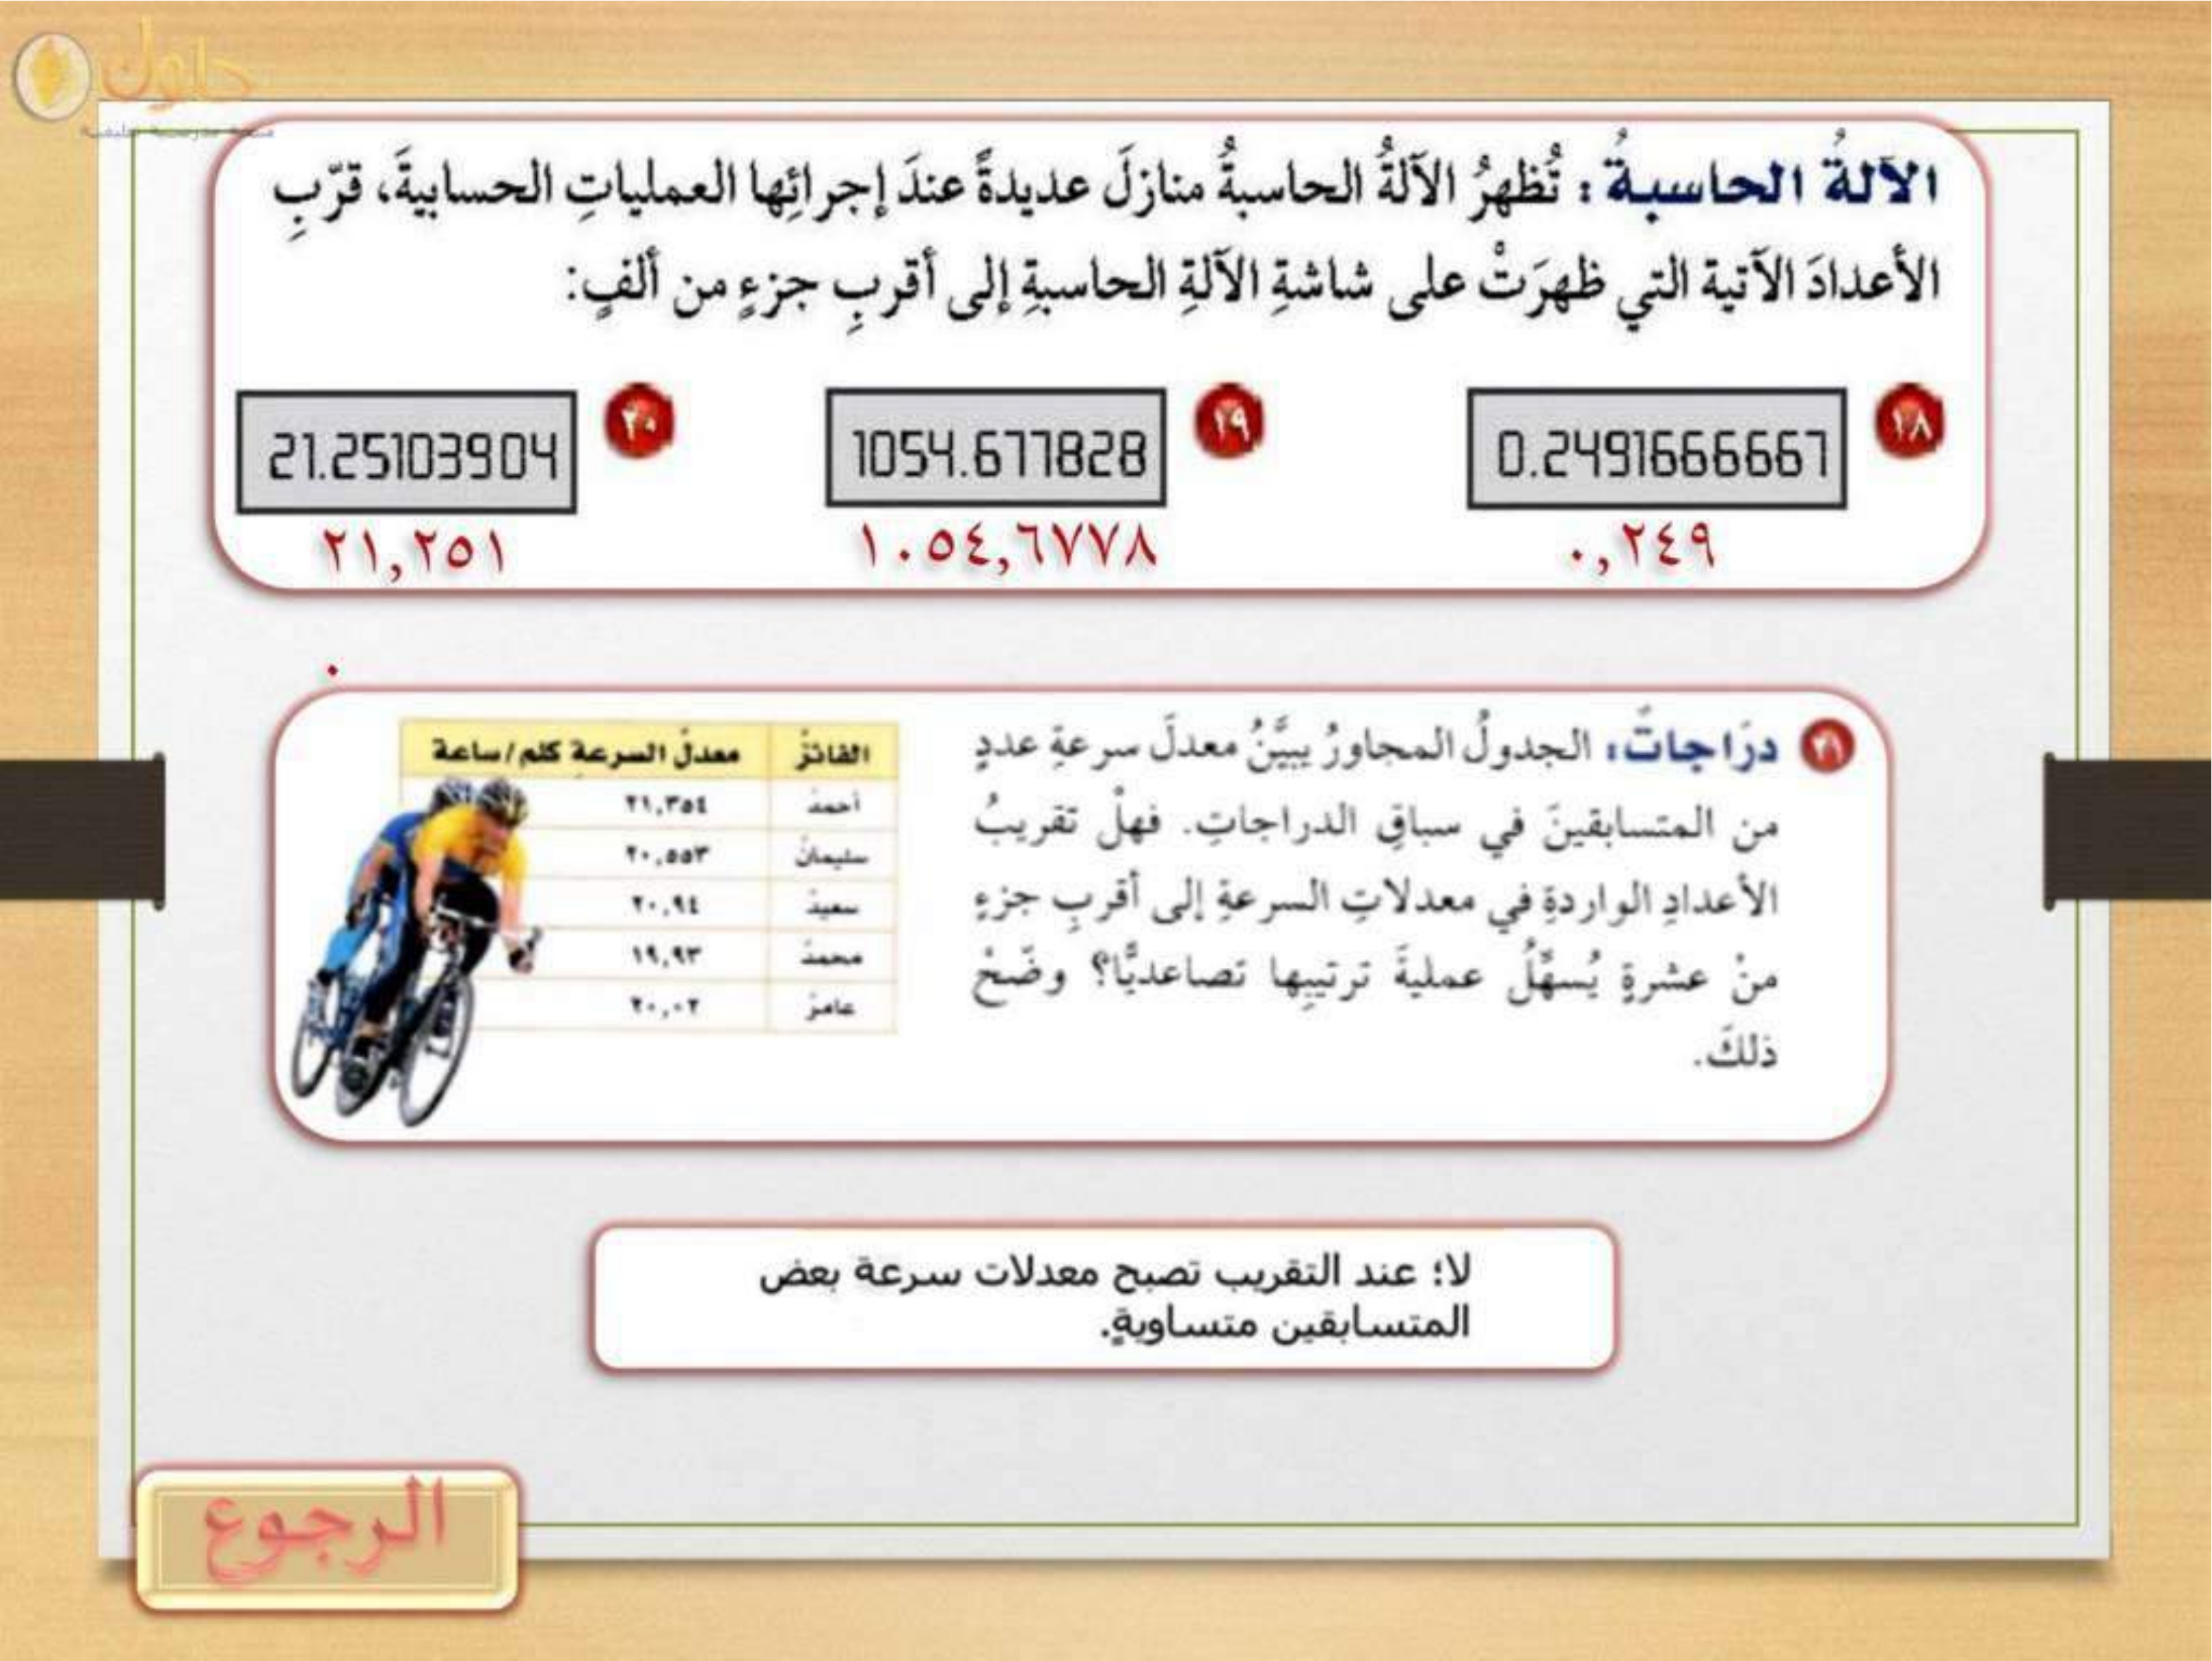 حلول
الآلةُ الحاسبةُ : تُظهرُ الآلةُ الحاسبةُ منازلَ عديدةً عندَ إجرائِها العملياتِ الحسابيةَ، قرّبِ
الأعدادَ الآتية التي ظهرَتْ على شاشةِ الآلةِ الحاسبةِ إلى أقربِ جزءٍ من ألفٍ:
١٨ 0.2491666667 ١٩ 1054.677828 ٢٠ 21.25103904
٠,٢٤٩ ١٠٥٤,٦٧٧٨ ٢١,٢٥١
٢١ درّاجاتٌ، الجدولُ المجاورُ يبيَّنُ معدلَ سرعةِ عددٍ
من المتسابقينَ في سباقِ الدراجاتِ. فهلْ تقريبُ
الأعدادِ الواردةِ في معدلاتِ السرعةِ إلى أقربِ جزءٍ
منْ عشرةٍ يُسهِّلُ عمليةَ ترتيبِها تصاعديًّا؟ وضّحْ
ذلكَ.
الفائزُ معدلُ السرعةِ كلم/ساعة
أحمدُ ٢١,٣٥٤
سليمانُ ٢٠,٥٥٣
سعيدُ ٢٠,٩٤
محمدُ ١٩,٩٣
عامرُ ٢٠,٠٢
لا؛ عند التقريب تصبح معدلات سرعة بعض
المتسابقين متساويةٍ.
الرجوع